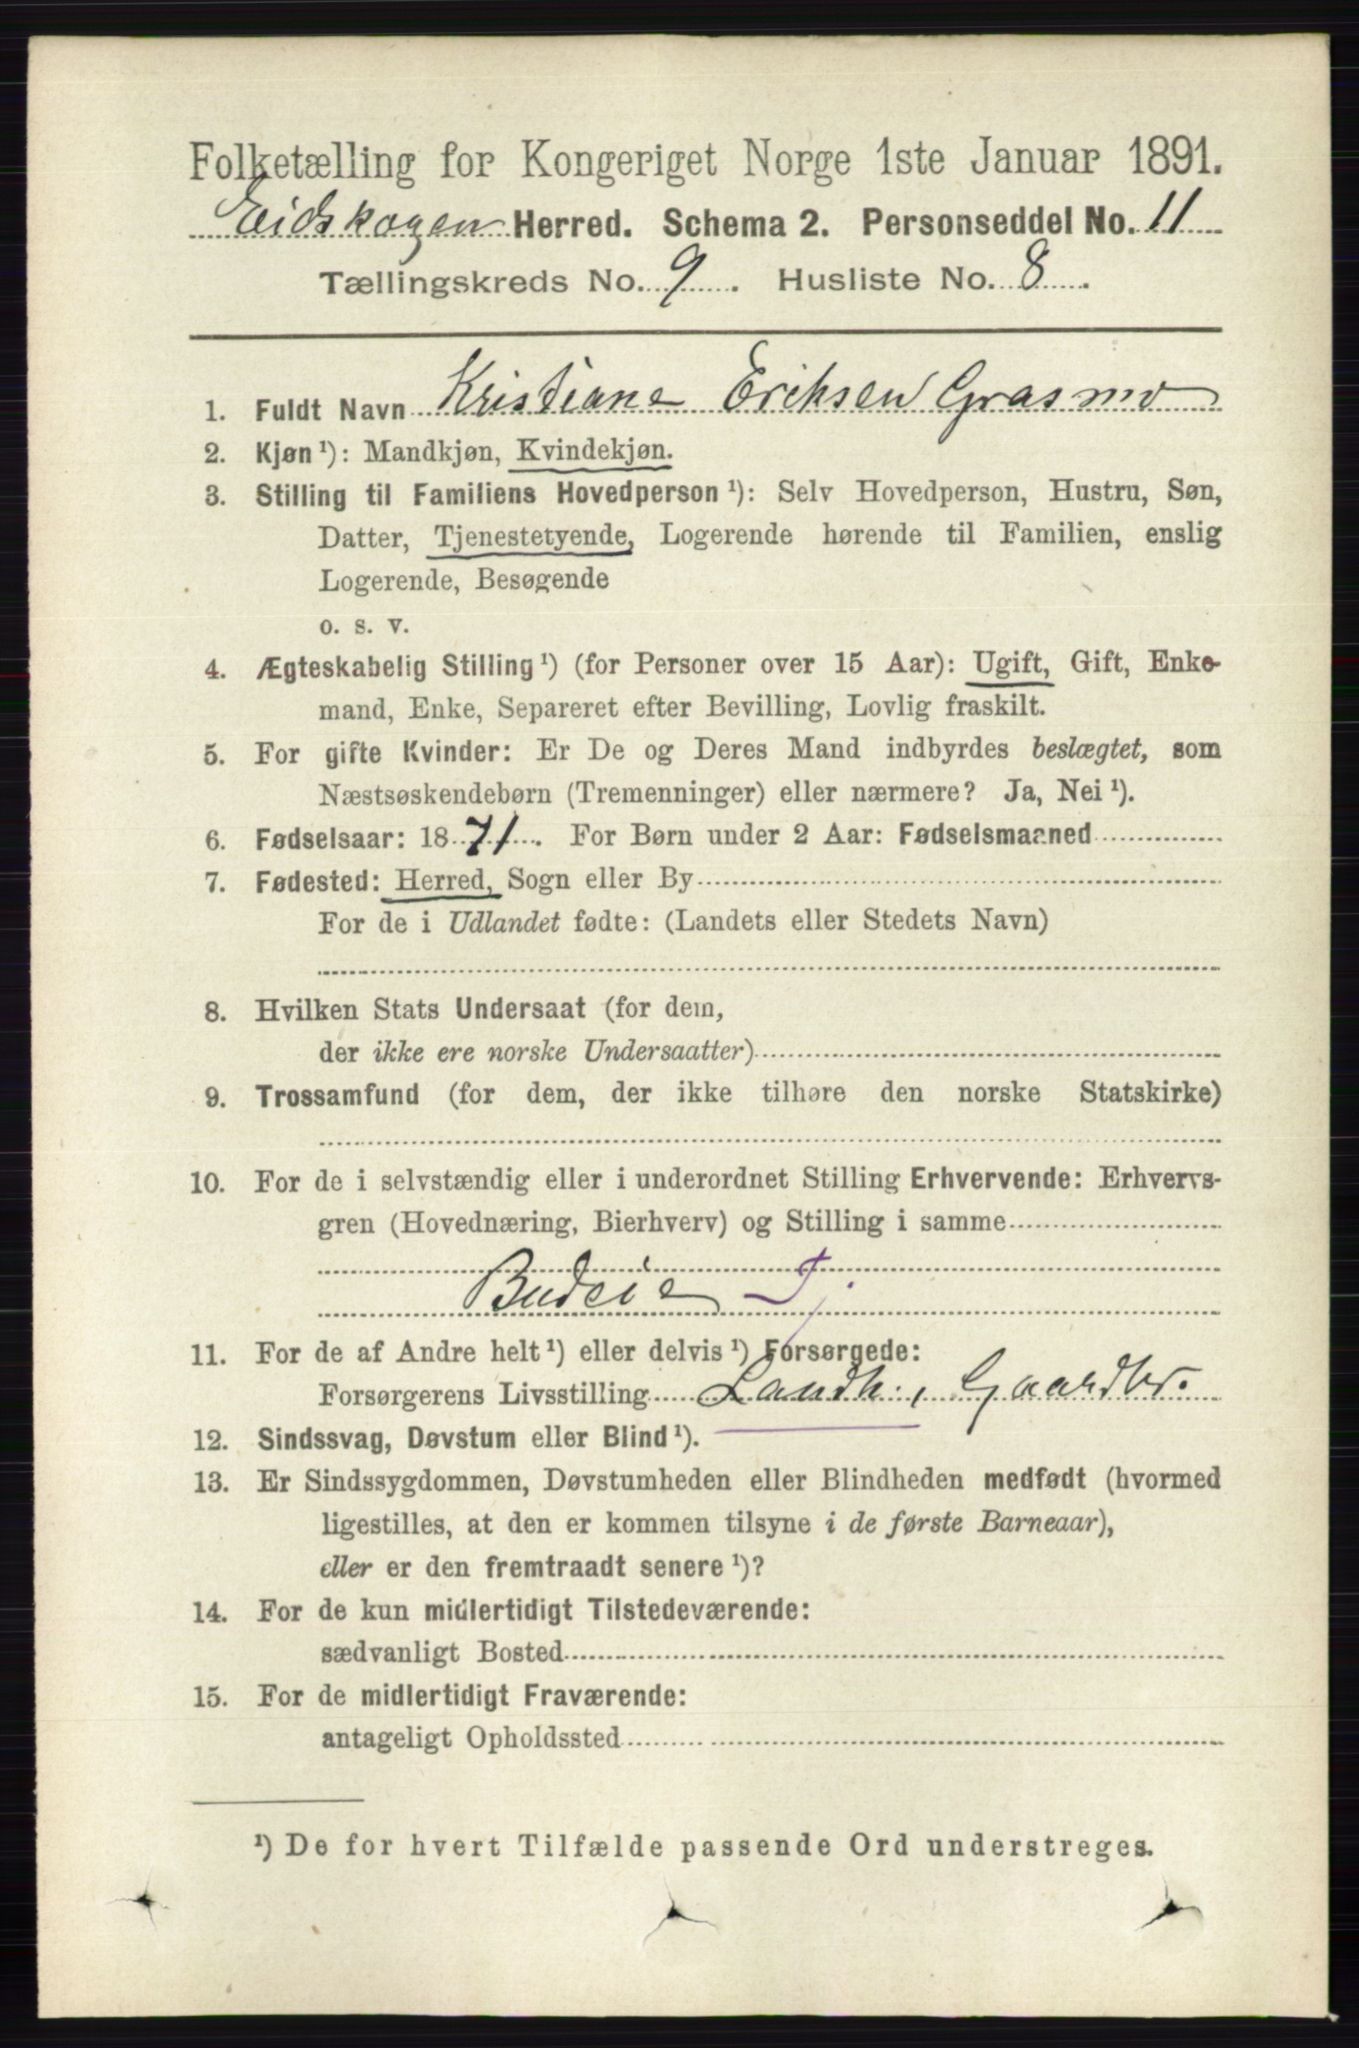 Folketælling for Kongeriget Norge 1ste Januar 1891.
Eidskogen Herred. Schema 2. Personseddel No. 11
Tællingskreds No. 9. Husliste No. 8.
1. Fuldt Navn Kristiane Eriksen Grasmo
2. Kjøn ¹): Mandkjøn, Kvindekjøn.
3. Stilling til Familiens Hovedperson ¹): Selv Hovedperson, Hustru, Søn,
Datter, Tjenestetyende, Logerende hørende til Familien, enslig
Logerende, Besøgende
o. s. v.
4. Ægteskabelig Stilling ¹) (for Personer over 15 Aar): Ugift, Gift, Enke-
mand, Enke, Separeret efter Bevilling, Lovlig fraskilt.
5. For gifte Kvinder: Er De og Deres Mand indbyrdes beslægtet, som
Næstsøskendebørn (Tremenninger) eller nærmere? Ja, Nei ¹).
6. Fødselsaar: 1871. For Børn under 2 Aar: Fødselsmaaned
7. Fødested: Herred, Sogn eller By
For de i Udlandet fødte: (Landets eller Stedets Navn)
8. Hvilken Stats Undersaat (for dem,
der ikke ere norske Undersaatter)
9. Trossamfund (for dem, der ikke tilhøre den norske Statskirke)
10. For de i selvstændig eller i underordnet Stilling Erhvervende: Erhvervs-
gren (Hovednæring, Bierhverv) og Stilling i samme
Budeie Tj.
11. For de af Andre helt ¹) eller delvis ¹) Forsørgede:
Forsørgerens Livsstilling Landh., Gaardbr.
12. Sindssvag, Døvstum eller Blind ¹).
13. Er Sindssygdommen, Døvstumheden eller Blindheden medfødt (hvormed
ligestilles, at den er kommen tilsyne i de første Barneaar),
eller er den fremtraadt senere ¹)?
14. For de kun midlertidigt Tilstedeværende:
sædvanligt Bosted
15. For de midlertidigt Fraværende:
antageligt Opholdssted
¹) De for hvert Tilfælde passende Ord understreges.